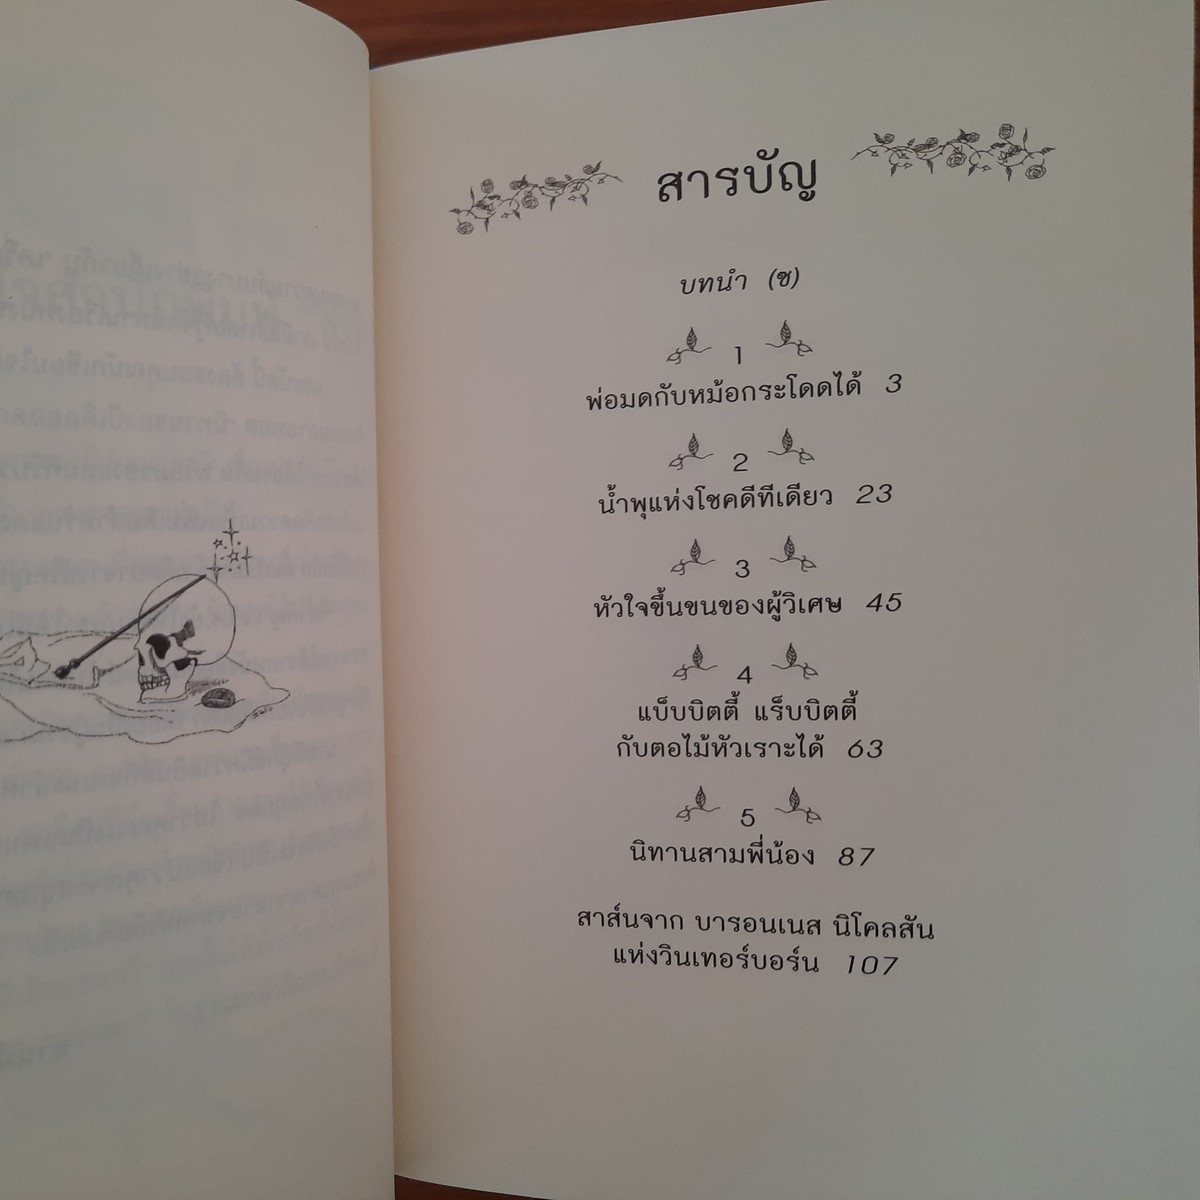 สารบัญ
บทนำ (ช)
1
พ่อมดกับหม้อกระโดดได้ 3
2
น้ำพุแห่งโชคดีทีเดียว 23
3
หัวใจขึ้นขนของผู้วิเศษ 45
4
แบ็บบิตตี้ แร็บบิตตี้
กับตอไม้หัวเราะได้ 63
5
นิทานสามพี่น้อง 87
สาส์นจาก บารอนเนส นิโคลสัน
แห่งวินเทอร์บอร์น 107